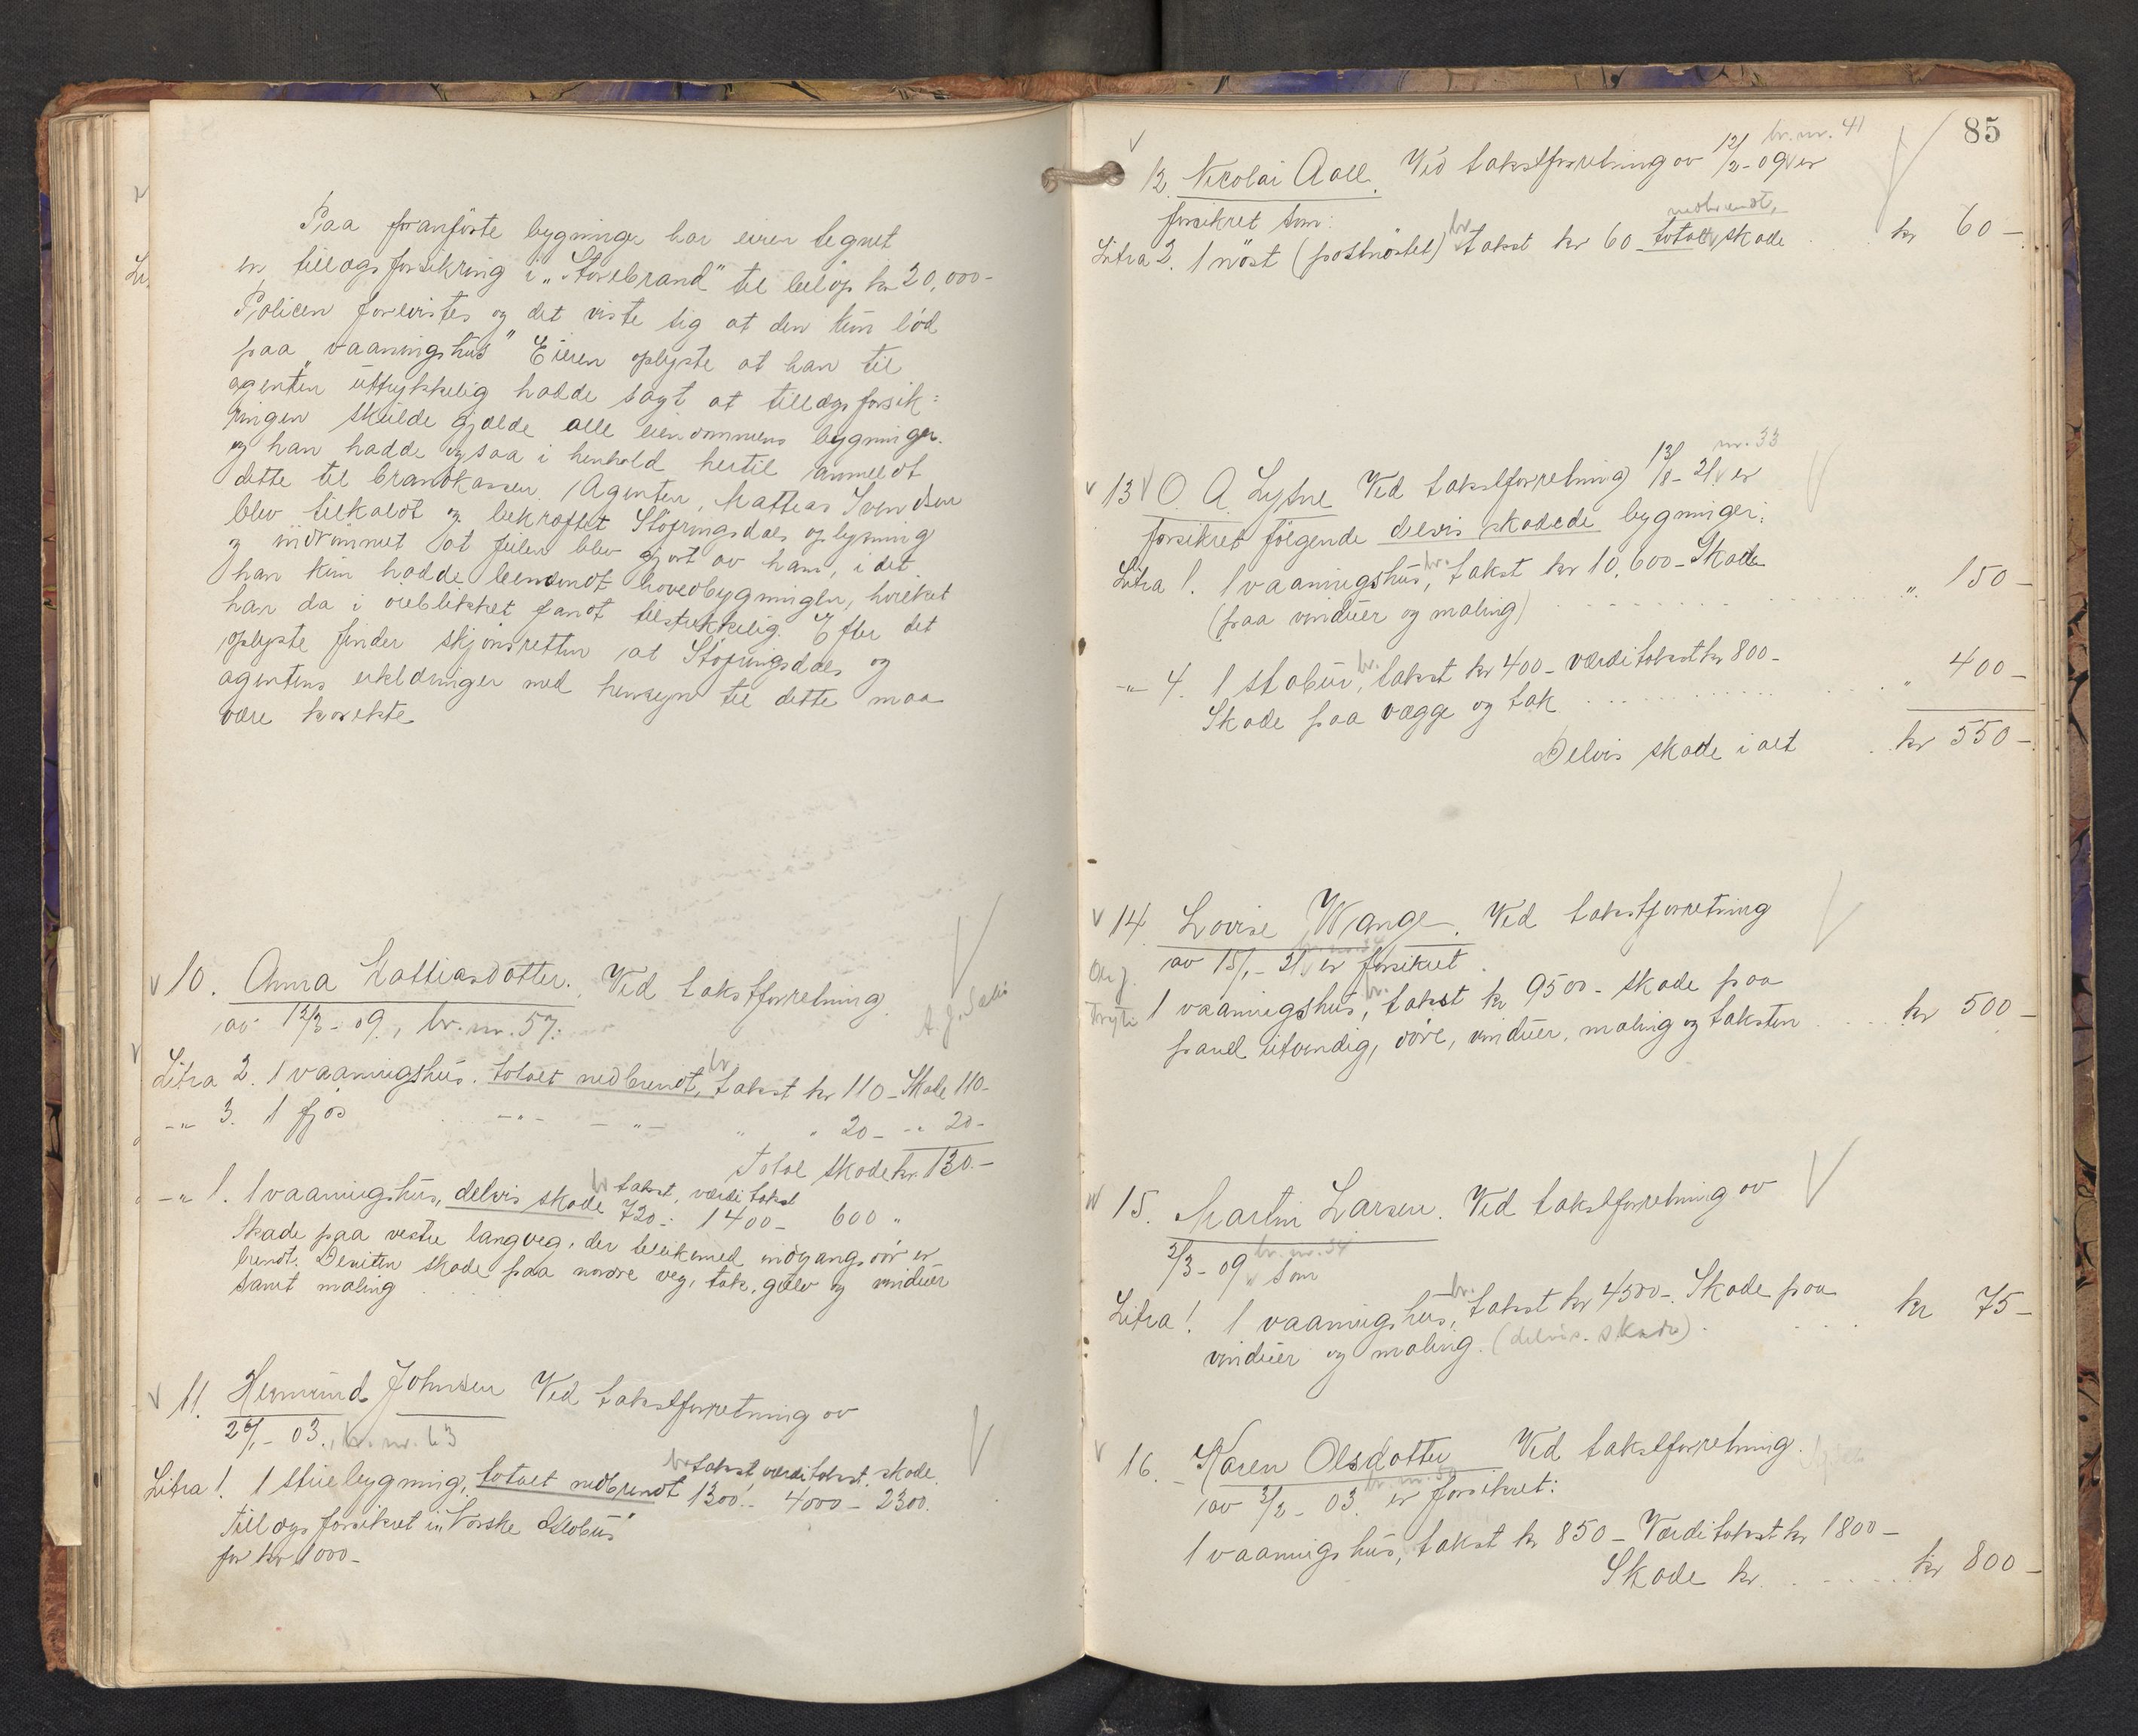 Paa foranförte bygninger har eieren tegnet
en tillægsforsikring i „Storebrand" til beløp kr 20,000-
Policen forevistes og det viste sig at den kun lød
paa „vaaningshus" Eieren oplyste at han til
agenten uttrykkelig hadde sagt at tillægsforsik=
ringen skulde gjælde alle eiendommens bygninger.
og han hadde ogsaa i henhold hertil anmeldt
dette til brandkassen. Agenten, Mattias Svendsen
blev tilkaldt og bekræftet Støpringsdals oplysning
og indrømmet at feilen blev gjort av ham, i det
han kun hadde benevndt hovedbygningen, hvilket
han da i öieblikket fandt tilstrekkelig. Efter det
oplyste finder skjönsretten at Stöpringsdals og
agentens erklæringer med hensyn til dette maa
være korrekte
10. Anna Mattiasdotter. Ved takstforretning
av 12/3 - 09, br. nr. 57.
Litra 2. 1 vaaningshus. totalt nedbrendt, br takst kr 110 - Skade 110-
-"- 3. 1 fjös -"- -"- " " 20 - -"- 20-
Total skade kr 130.-
-"- 1. 1 vaaningshus, delvis skade br takst, værditakst
720.- 1400- 600 "
Skade paa vestre langveg, der tillikemed indgangsdör er
brendt. Desuten skade paa nordre veg, tak, gulv og vinduer
samt maling
11. Hermund Johnsen Ved takstforretning av
/1 - 03., br. nr. 63
Litra 1. 1 stuebygning, totalt nedbrendt br takst værditakst skade
1300.- 4000 - 2300.
Tillægsforsikret i „Norske Globus"
for kr 1000-
85
12. Nicolai Aall. Ved takstforretning av 12/2 - 09 er br. nr. 41
forsikret som:
nedbrendt,
Litra 2. 1 nöst (postnöstet) br takst kr 60 - total skade kr 60 -
13 O. A. Lysne Ved takstforretning 13/8 - 21 er nr. 33
forsikret fölgende delvis skadede bygninger:
Litra 1. 1 vaaningshus, br. takst kr 10,600 - Skade
(paa vinduer og maling) " 150 -
-"- 4. 1 stabur, br. takst kr 400 - værditakst kr 800 -
Skade paa vægge og tak " 400 -
Delvis skade i alt kr 550 -
14. Lovise Wange. Ved takstforretning
av 15/1 - 21 er forsikret
1 vaaningshus, br. takst kr 9500 - skade paa
panel utvendig, döre, vinduer, maling og taksten kr 500 -
15. Martin Larsen. Ved takstforretning av
2/3 - 09 br. nr. 34 som
Litra 1. 1 vaaningshus, br. takst kr 4500 -. Skade paa
vinduer og maling. (delvis. skade) kr 75 -
16. Karen Olsdotter Ved takstforretning.
av 3/2 - 03 er forsikret:
1 vaaningshus, takst kr 850 - Værditakst kr 1800 -
Skade kr. kr 800 -